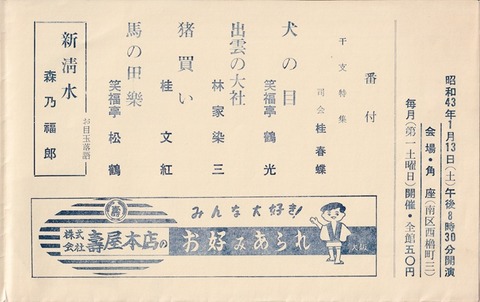 昭和43年1月13日(土)午後8時30分開演
会場・角座(南区西櫓町三)
毎月(第一土曜日)開催・全館五〇円
番付
干支特集
司会 桂春蝶
犬の目
笑福亭鶴光
出雲の大社
林家染三
猪買い
桂文紅
馬の田楽
笑福亭松鶴
お目玉落語
新清水
森乃福郎
みんな大好き!
壽
株式会社壽屋本店のお好みあられ
大阪